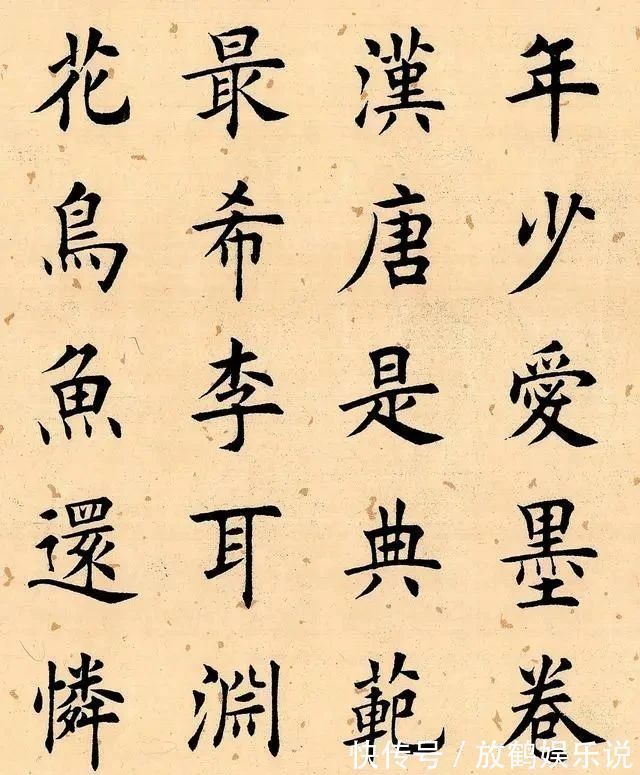 年少愛墨卷
漢唐是典範
最希李耳淵
花鳥魚還憐
快传号/放鹤娱乐说